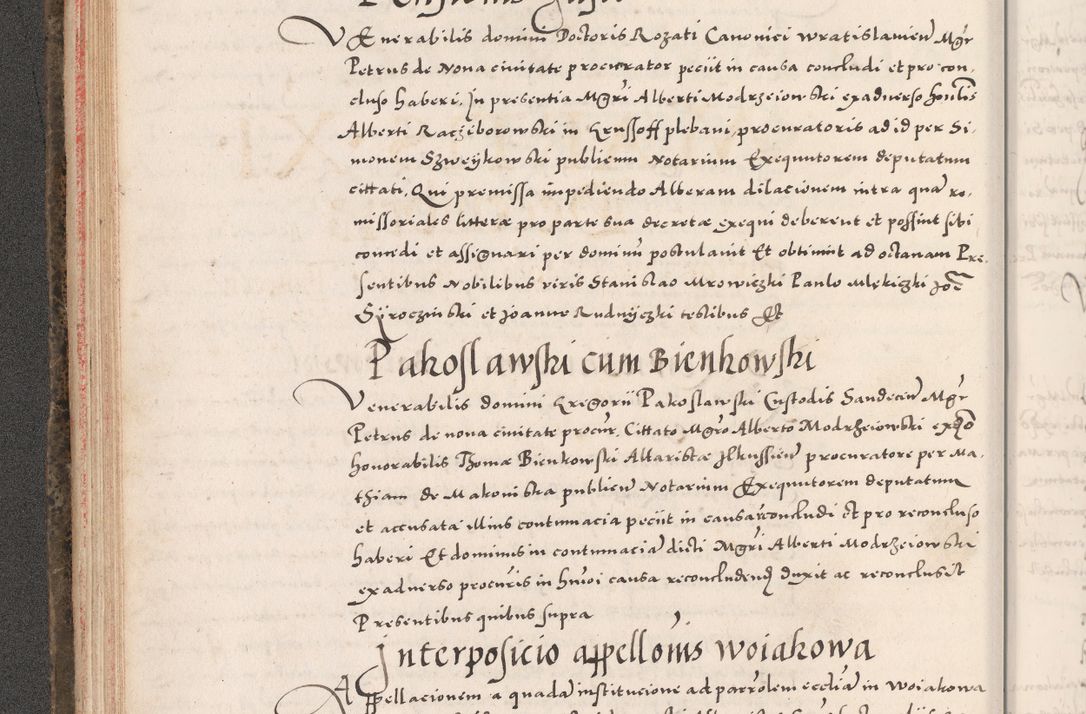 Venerabilis domini Doctoris Rozati Canonici wratislavien̄ Mgr̄
Petrus de Nova civitate procurator peciit in causa concludi et pro con,
cluso haberi. In presentia Mgr̄i Alberti Modrzeiowski exadverso honilis
Alberti Raczibоrowski in Krussoff plebani, procuratoris ad id per Si,
monem Szweÿkowski publicum Notarium Exequutorem deputatum
cittati. Qui premissa impediendo Alberam dilacionem intra qua ro,
missoriales litteræ pro parte sua decretæ exequi deberent et possint sibi
concedi et assignari per dominū postulavit Et obtinuit ad octavam Pre,
sentibus Nobilibus viris Stanislao Mrowiczki Paulo Mlekiczki Joē
Syroczinski et Joanne Rudnyczki testibus Et
Pakoslawski cum Bienkowski
Venerabilis domini Gregorii Pakoslawski Custodis Sandecien̄ Mgr̄
Petrus de nova civitate procur̄. Cittato Mgr̄o Alberto Modrzeiowski ex
honorabilis Thomæ Bienkowski Altaristæ Ilkussien̄ procuratore per Ma,
thiam de Makoniska publicū Notarium Exequutorem deputatum
et accusata illius contumacia peciit in causa reconcludi et pro reconcluso
haberi Et dominus in contumaciā dicti Mgr̄i Alberti Modrzeiowski
exadverso procur̄is in hmōi causa reconcludend duxit ac reconclusit
Presentibus quibus supra
Interposicio appellonis Woiakowa
Appellacionem a quadā institucione ad parrolem ecclīā in Woiakowa